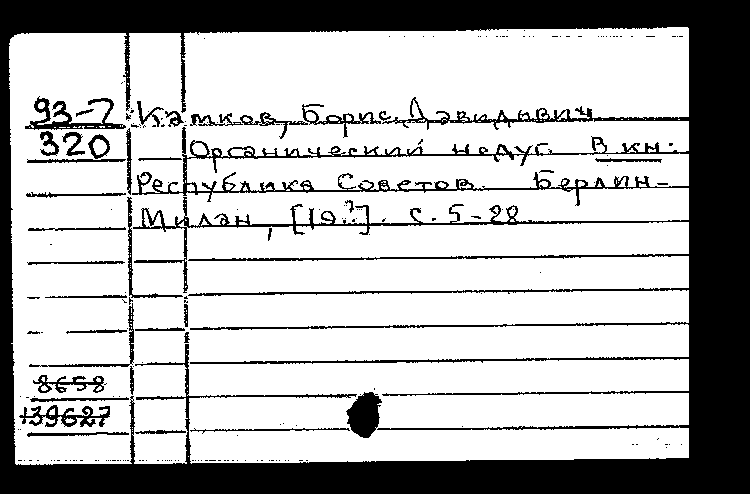 93-7 Камков, Борис Давидович
320 Органический недуг. В кн.:
Республика Советов. Берлин-
Милан, [19.?]. с. 5-28.
8658
139627